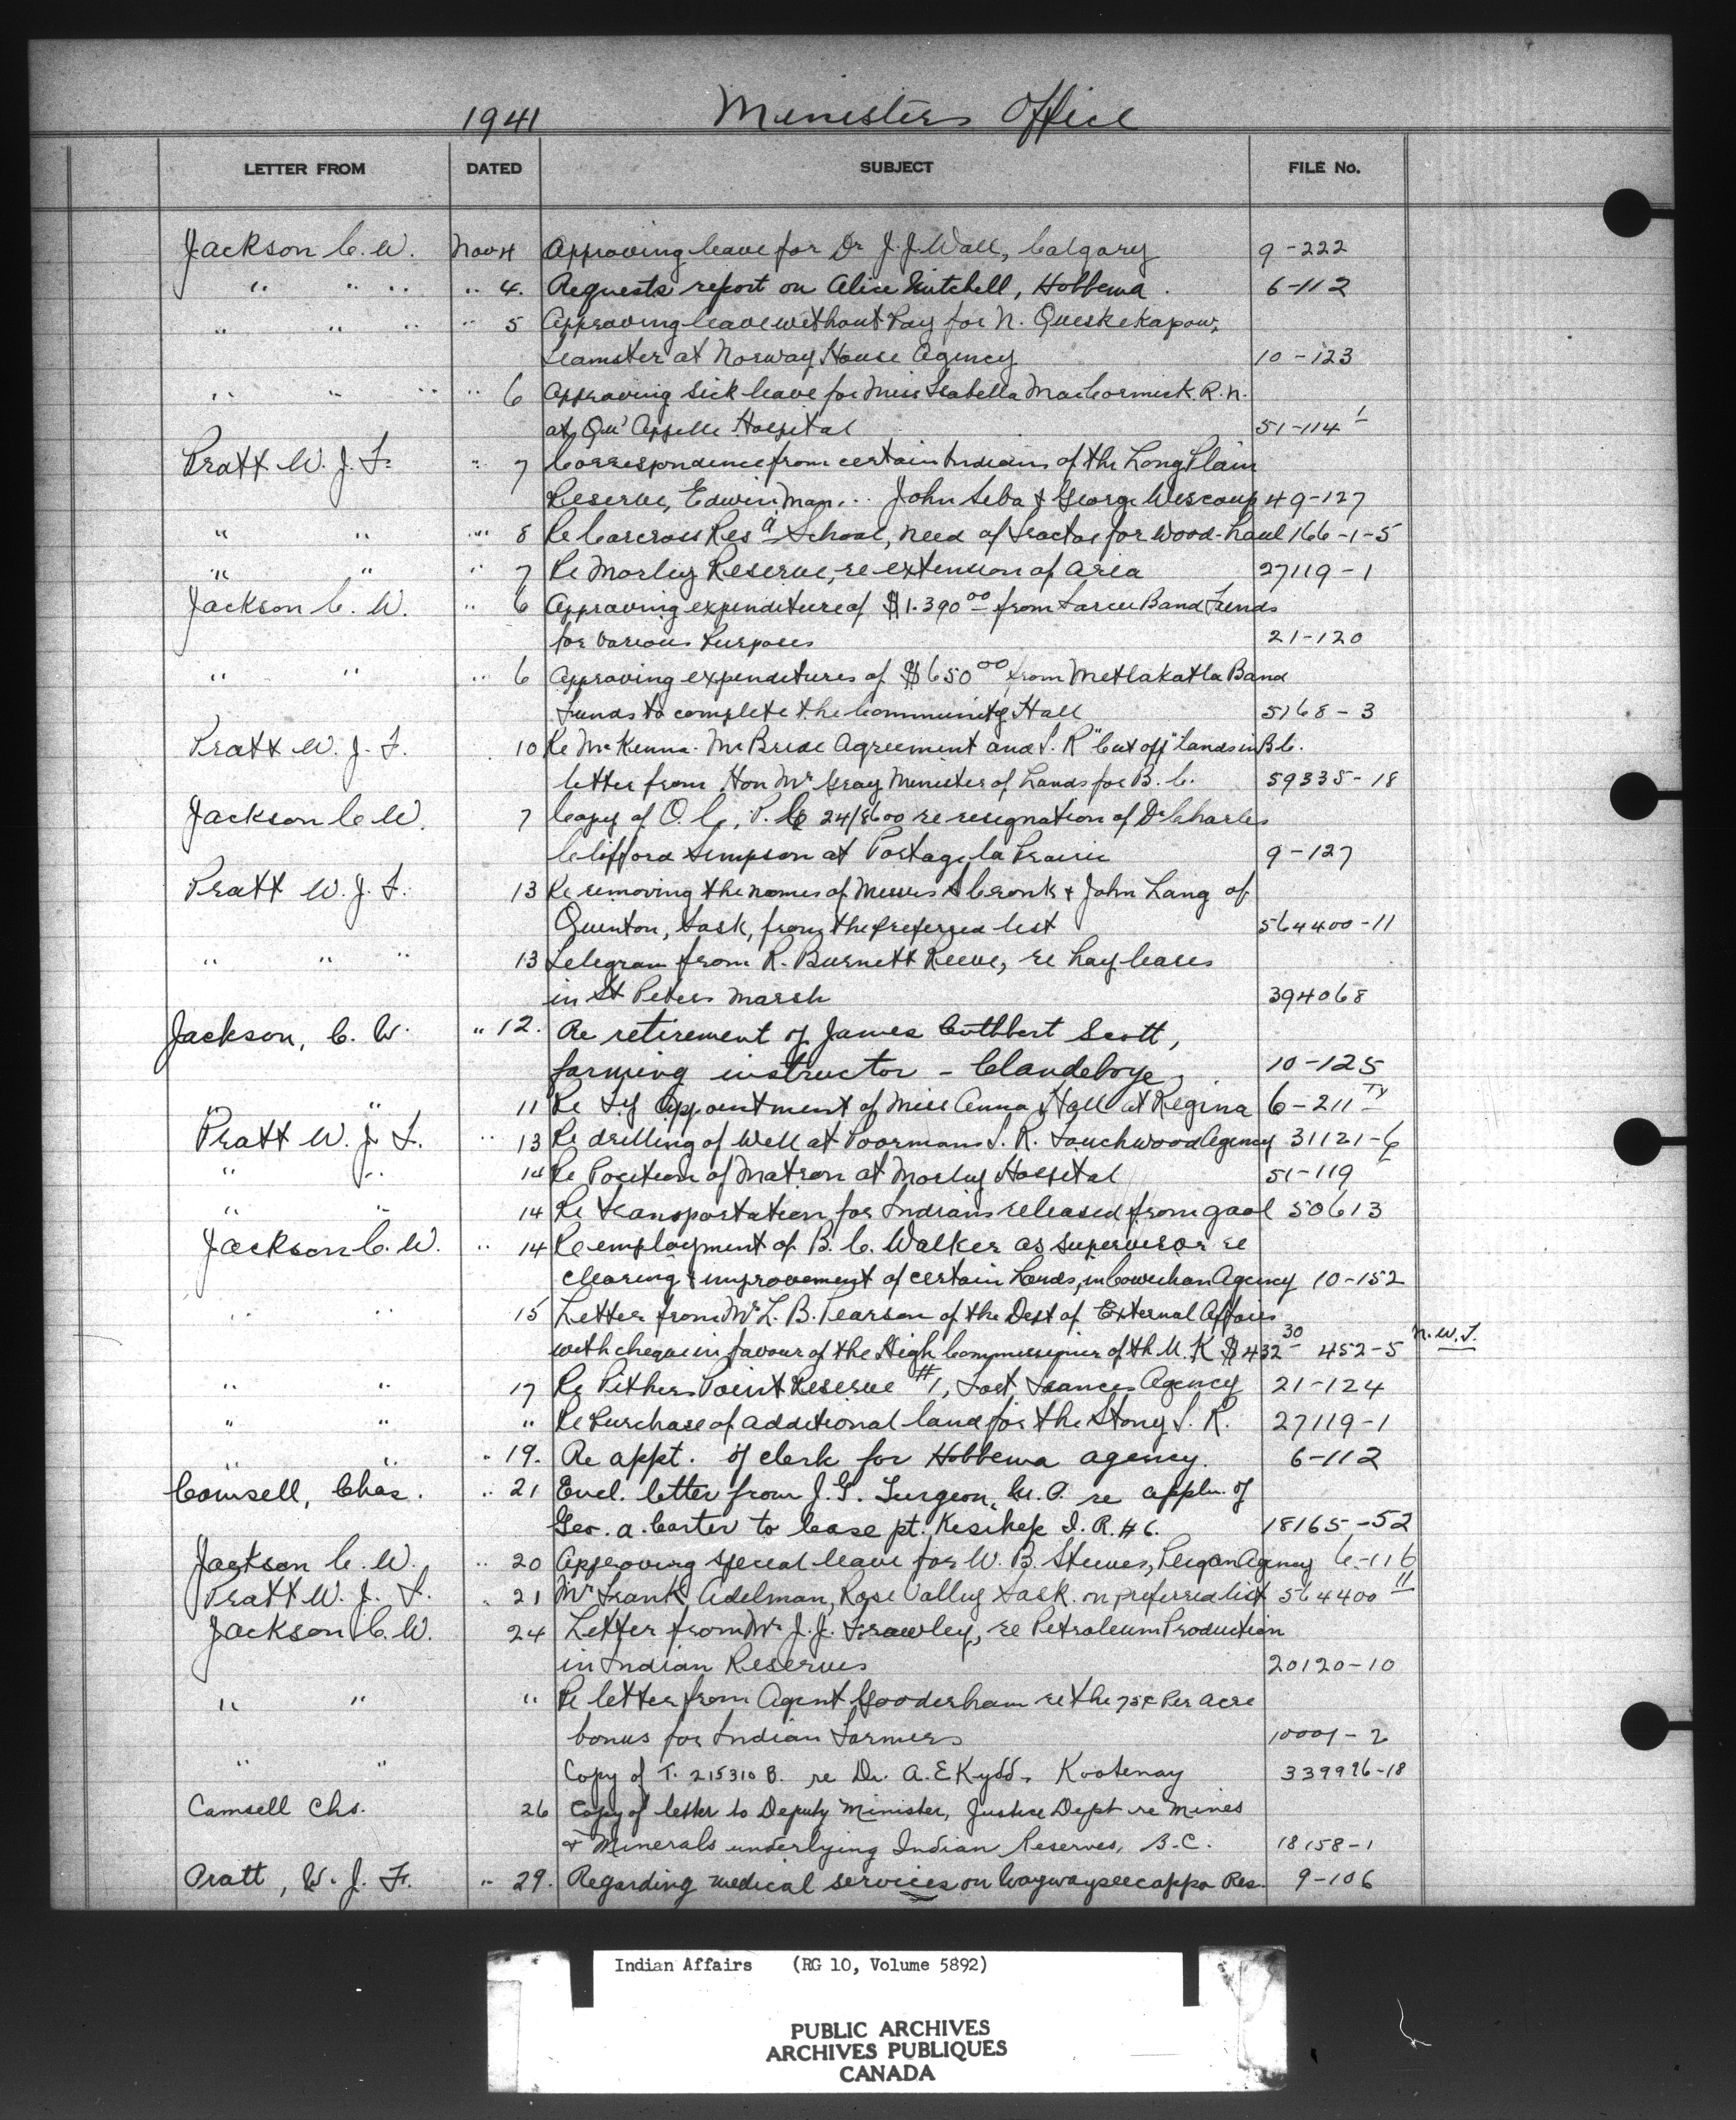 1941 Ministers Office
LETTER FROM DATED SUBJECT FILE No.
Jackson C. W. Nov 4 Approving leave for Dr J. J. Wall, Calgary 9-222
" " " " 4. Requests report on Alice Mitchell, Hobbema. 6-112
" " " " 5 Approving leave without Pay for N. Queskekapow,
Teamster at Norway House Agency 10-123
" " " " 6 Approving sick leave for Miss Isabella MacCormick. R.N.
at Qu'Appelle Hospital 51-114
Pratt W. J. F. " 7 Correspondence from certain Indians of the Long Plain
Reserve, Edwin John Seba & George Wescoup 49-127
" " " 8 Re Carcross Res'l School, need of tractor for wood-haul 166-1-5
" " " 7 Re Morley Reserve, re extension of area 27119-1
Jackson C. W. " 6 Approving expenditure of $1.390 00 from Sarcee Band Funds
for various Purposes 21-120
" " " 6 Approving expenditures of $650 00 from Metlakatla Band
Funds to complete the Community Hall 5168-3
Pratt W. J. F. 10 Re McKenna-McBride Agreement and I. R "Cut off" Lands in B.C.
letter from Hon Mr Gray Minister of Lands for B. C. 59335-18
Jackson C W. 7 Copy of O. C, P. C 24/8600 re resignation of Dr Charles
Clifford Simpson at Portage la Prairie 9-127
Pratt W. J. F. 13 Re removing the names of Messrs Cronk & John Lang of
Quinton, Sask, from the preferred list 564400-11
" " " 13 Telegram from R. Burnett Reeve, re hay leases
in St Peters Marsh 394068
Jackson, C. W. " 12. Re retirement of James Cuthbert Scott,
farming instructor - Clandeboye. 10-125
" " 11 Re Ty Appointment of Miss Anna Hall at Regina 6-211 TY
Pratt W. J. F. " 13 Re drilling of Well at Poormans I. R. Touchwood Agency 31121-6
" " 14 Re Position of Matron at Morley Hospital 51-119
" " 14 Re transportation for Indians released from gaol 50613
Jackson C. W. " 14 Re employment of B. C. Walker as supervisor re
clearing & improvement of certain Lands, in Cowichan Agency 10-152
" " 15 Letter from Mr L. B. Pearson of the Dept of External Affairs
with cheque in favour of the High Commissioner of th U. K $432 30 452-5 N.W.T.
" " 17 Re Pithers Point Reserve #1, Fort Frances Agency 21-124
" " " Re Purchase of additional land for the Stony I. R. 27119-1
" " " 19. Re appt. of clerk for Hobbema agency. 6-112
Camsell, Chas. " 21 Encl. letter from J. G. Turgeon, M. P. re appln. of
Geo. A. Carter to lease pt. Kesikep I. R. # 6. 18165-52
Jackson C. W. " 20 Approving special leave for W. B. Steeves, Peigan Agency 6-116
Pratt W. J. F. " 21 Mr Frank Adelman, Rose Valley Sask. on preferred list 564400 11
Jackson C. W. 24 Letter from Mr J. J. Frawley, re Petroleum Production
in Indian Reserves 20120-10
" " " Re letter from Agent Gooderham re the 75¢ Per acre
bonus for Indian Farmers 10001-2
" " Copy of T. 215310 B. re Dr. A. E Kydd, Kootenay 339996-18
Camsell Chs. 26 Copy of letter to Deputy Minister, Justice Dept re Mines
& Minerals underlying Indian Reserves, B.C. 18158-1
Pratt, W. J. F. " 29. Regarding medical services on Waywayseecappo Res. 9-106
Indian Affairs (RG 10, Volume 5892)
PUBLIC ARCHIVES
ARCHIVES PUBLIQUES
CANADA